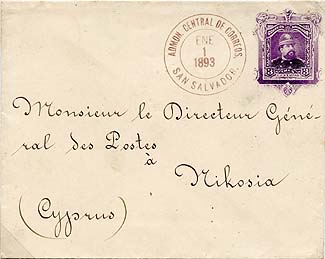 ADMON. CENTRAL DE CORREOS.
ENE
1
1893
SAN SALVADOR.
Monsieur le Directeur Géné-
ral des Postes
à
Nikosia
(Cyprus)